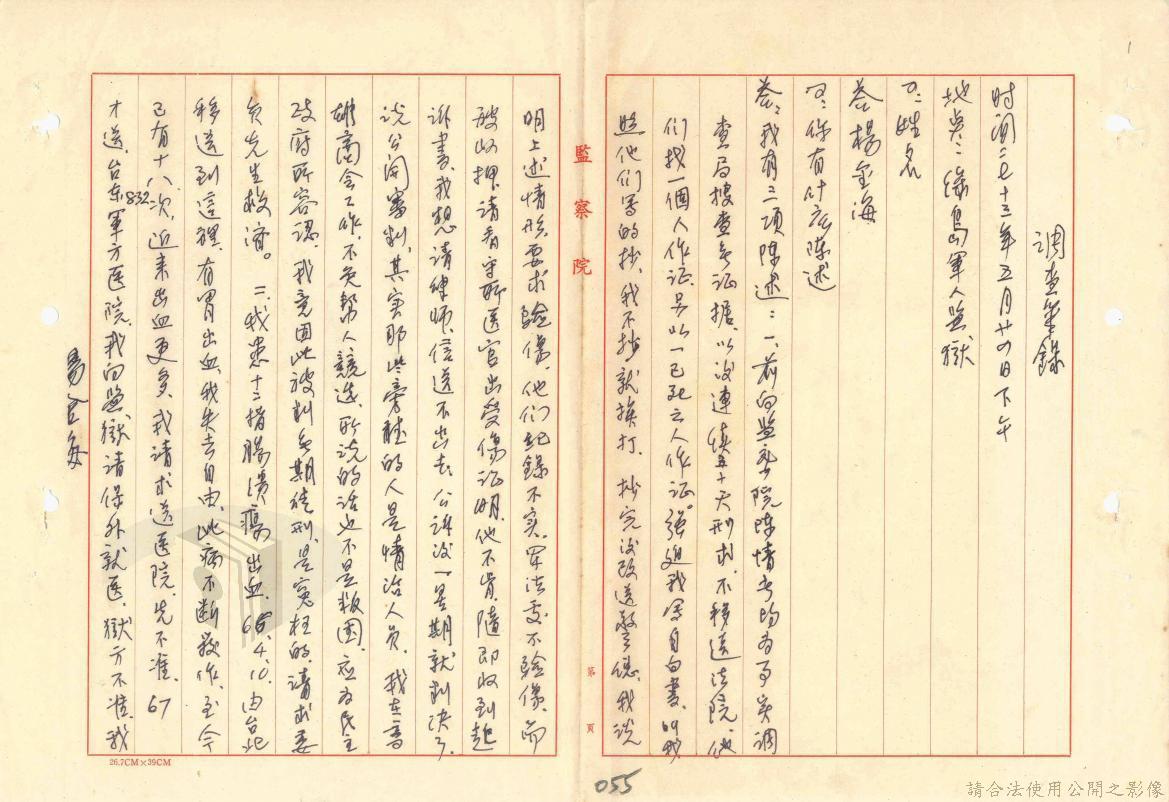 1
調查筆錄
时间:七十三年五月廿四日下午
地点:綠島軍人监獄
问:姓名
答:楊金海
问:你有什麽陳述
答:我有二項陳述:一、前向监察院陳情书均为事实调
查局搜查無证据、以後連續五十天刑求、不移送法院、他
们找一個人作证、另以一已死之人作证。強迫我写自白書、叫我
照他们写的抄、我不抄就挨打、抄完後改送警总、我说
監察院
第 頁
明上述情形、要求驗傷、他们記錄不实、军法處不驗傷、而
被收押、请看守所医官出受傷证明、他不肯、隨即收到起
诉書、我想请律师、信送不出去、公诉後一星期就判决了、
说公開審判、其实那些旁聽的人是情治人员、我在高
雄商会工作、不免幫人競选、所说的话也不是叛国、應为民主
政府所容認、我竟因此被判無期徒刑、是寃枉的、请求委
员先生救濟。二、我患十二指腸潰瘍出血、66、4、10、由台北
移送到這裡、有胃出血、我失去自由、此病不断發作、至今
已有十八次、近来出血更多、我请求送医院、先不准、67
832
才送台东軍方医院、我向监獄请保外就医、獄方不准、我
26.7CM×39CM
055
請合法使用公開之影像